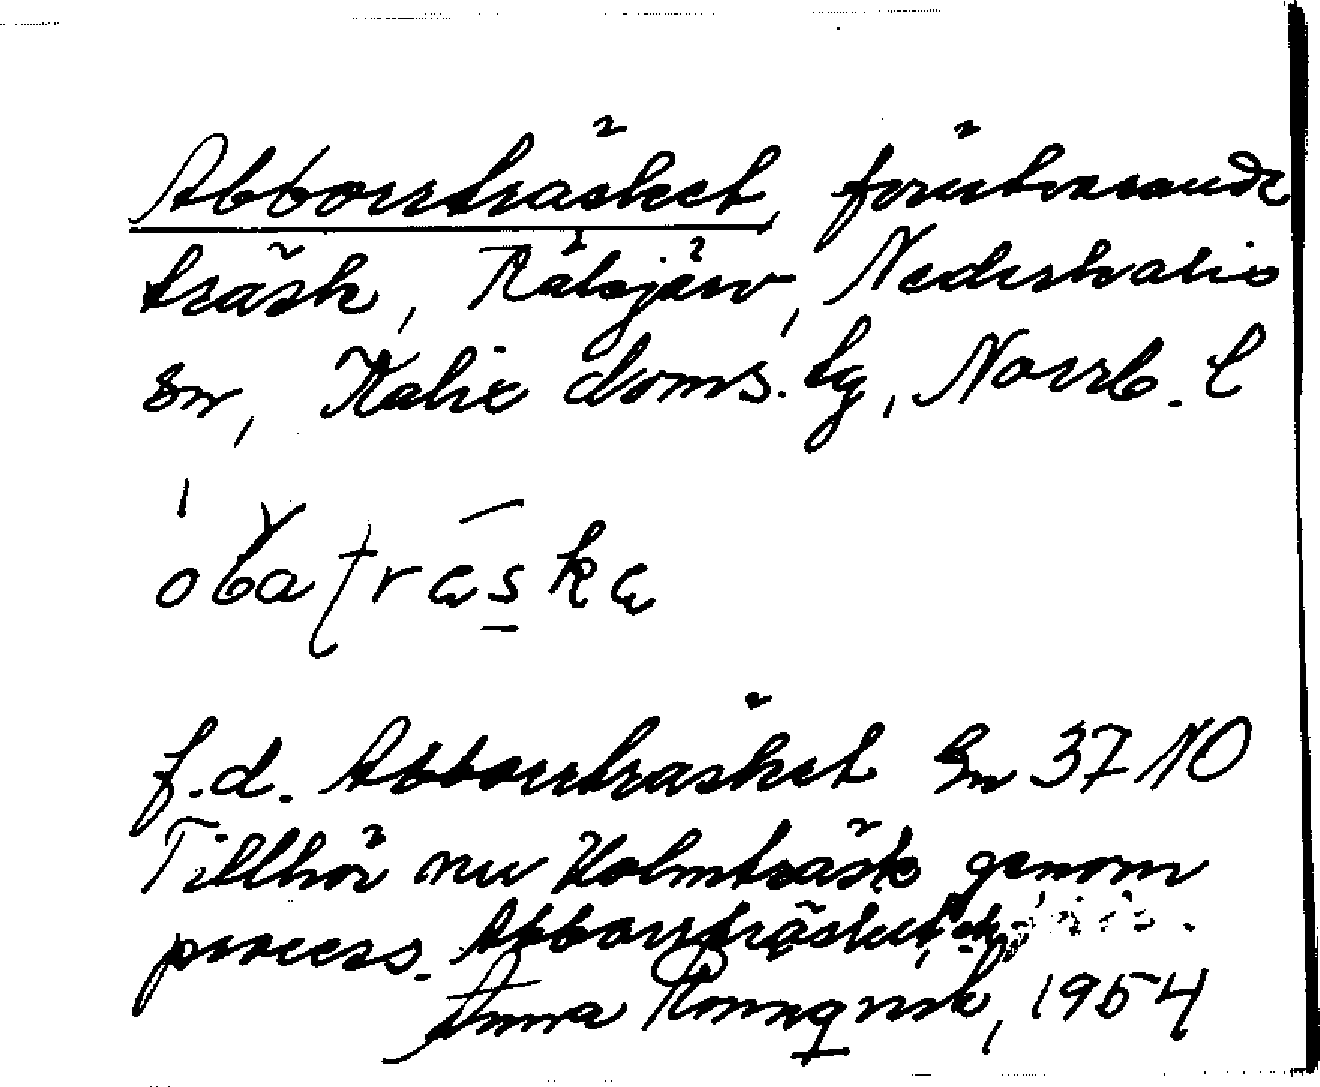 Abborrträsket, förutvarande
träsk, Rälsjärv, Nederkalix
sn, Kalix doms. lg, Norrb. l
f.d. Abborrträsket Gn 37 NO
Tillhör nu Holmträsk genom
process. Abborrträsket
Anna Rönnqvist, 1954